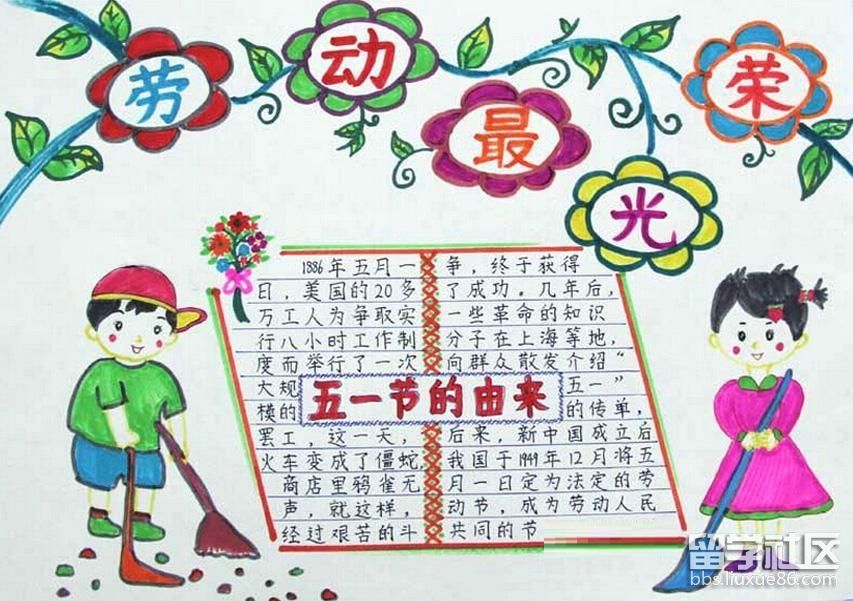 劳动最光荣
1886年五月一
日，美国的20多
万工人为争取实
行八小时工作制
度而举行了一次
大规
模的
五一节的由来
罢工，这一天，
火车变成了僵蛇，
商店里鸦雀无
声，就这样，
经过艰苦的斗
争，终于获得
了成功。几年后，
一些革命的知识
分子在上海等地，
向群众散发介绍“
五一”
的传单，
后来，新中国成立后
我国于1949年12月将五
月一日定为法定的劳
动节，成为劳动人民
共同的节
留学社区
bbs.liuxue86.com